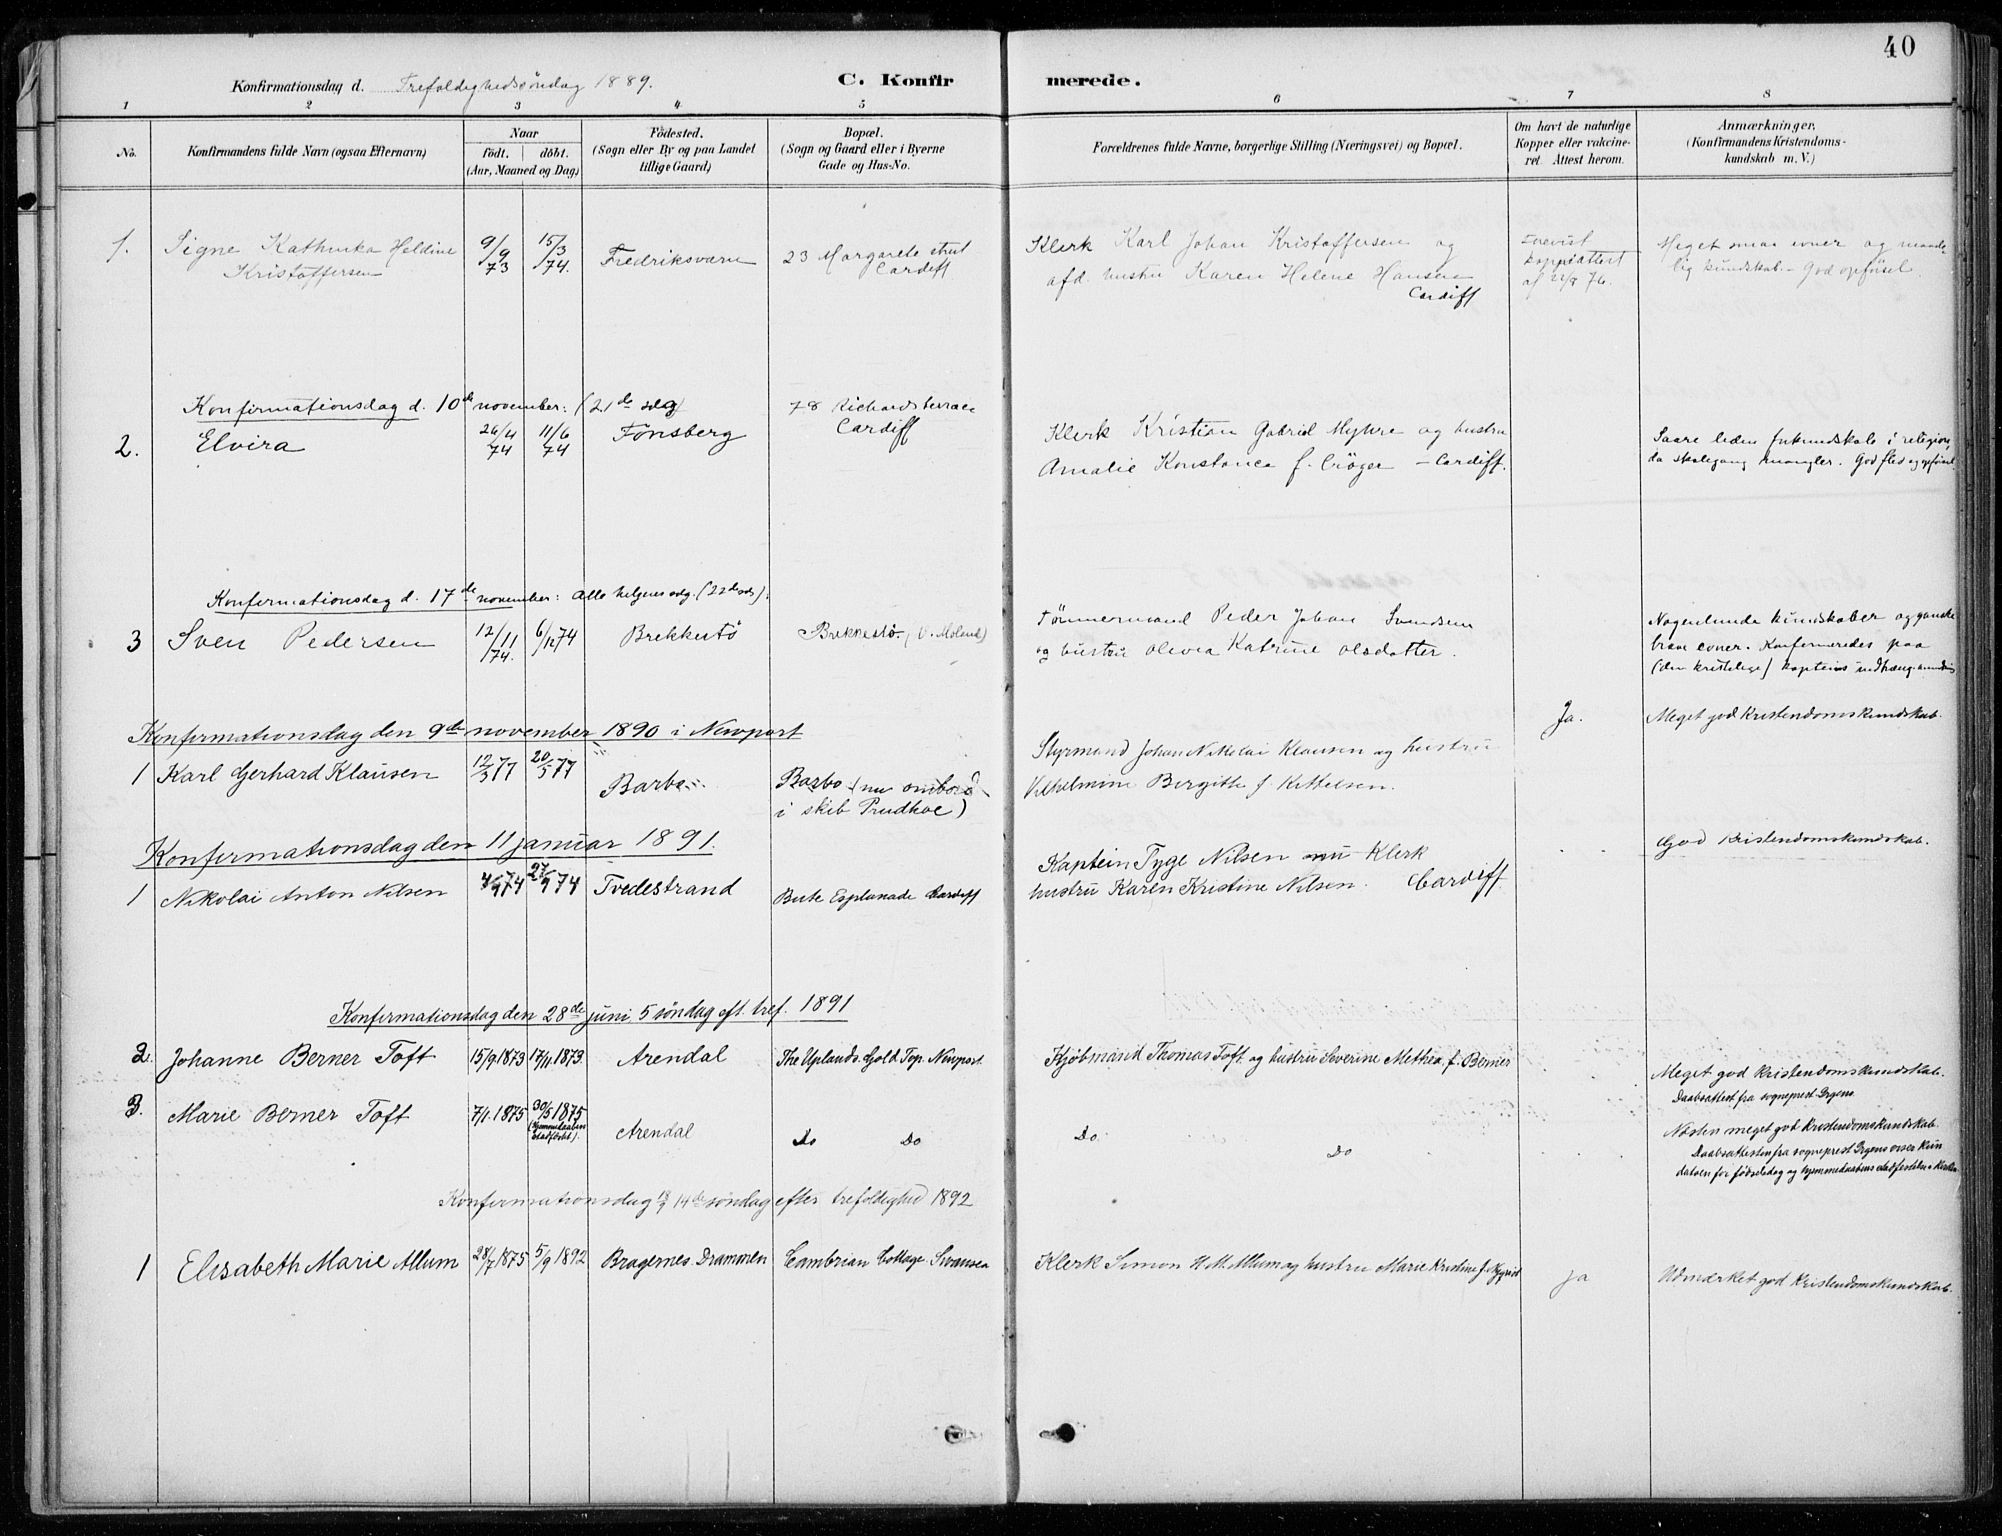 40
Konfirmationsdag d. Trefoldighedssøndag 1889. C. Konfirmerede.
1 2 3 4 5 6 7 8
No. Konfirmandens fulde Navn (ogsaa Efternavn) Naar født. døbt. (Aar, Maaned og Dag) Fødested. (Sogn eller By og paa Landet tillige Gaard) Bopæl. (Sogn og Gaard eller i Byerne Gade og Hus-No. Forældrenes fulde Navne, borgerlige Stilling (Næringsvei) og Bopæl. Om havt de naturlige Kopper eller vakcineret. Attest herom. Anmærkninger. (Konfirmandens Kristendomskundskab m. V.)
1. Signe Kathinka Heldine 9/9 73 15/3 74. Fredriksværn 23 Margarete street Klerk Karl Johan Kristoffersen og Forevist Meget smaa evner og maade-
Kristoffersen Cardiff afd. hustru Karen Helene Hansen koppeattest lig kundskab. - God opførsel.
Cardiff af 22/8 76.
Konfirmationsdag d. 10de november: (21de sdg) 78 Richards terrace
2. Elvira 26/4 74 11/6 74 Tønsberg Cardiff Klerk Kristian Gabriel Myhre og hustru Saare liden kundskab i religion,
Amalie Konstance f. Crøger - Cardiff. da skolegang mangler. God flid og opførsel
Konfirmationsdag d. 17de november: Alle helgens sdg. (22de sdg):
3 Sven Pedersen 12/11 74. 6/12 74 Brekkestø Brekkestø. (V. Moland) Tømmermand Peder Johan Svendsen Nogenlunde kundskaber og ganske
og hustru Olevia Katrine Olsdatter. braa evner. Konfirmeredes paa
(den kristelige) kapteins
Konfirmationsdag den 9de november 1890 i Newport Ja. Meget god Kristendomskundskab.
1 Karl Gerhard Klausen 12/3 77 20/5 77 Barbo Barbo (nu ombord Styrmand Johan Nikolai Klausen og hustru
i skib Prudhoe) Vilhelmine Birgitte f. Kittelsen.
Konfirmationsdag den 11 januar 1891. God Kristendomskundskab.
1 Nikolai Anton Nilsen 4/9 74 27/9 74 Tvedestrand Bute Esplanade Cardiff Kaptein Tyge Nilsen nu Klerk
hustru Karen Kristine Nilsen. Cardiff
Konfirmationsdag den 28de juni 5 søndag eft. tref. 1891
2. Johanne Berner Toft 15/9 1873 17/11 1873 Arendal The Uplands Gold Top Newport Kjøbmand Thomas Toft og hustru Severine Methea f. Berner Meget god Kristendomskundskab.
Daabsattest fra sogneprest Ørgens
3. Marie Berner Toft 7/1. 1875 30/5 1875 (hjemmedaaben stadfæstet). Arendal Do Do Do Do Næsten meget god Kristendomskundskab.
Daabsattesten fra sogneprest Ørgens viser kun
datoen for fødselsdag og hjemmedaabens stadfestelse i Kirken
Konfirmationsdag 18/9 14de søndag efter trefoldighed 1892
1 Elisabeth Marie Allum 28/7 1875 5/9 1892 Bragernes Drammen Cambrian Cottage Swansea Klerk Simon H. M. Allum og hustru Marie Kristine f. ja Udmærket god Kristendomskundskab.